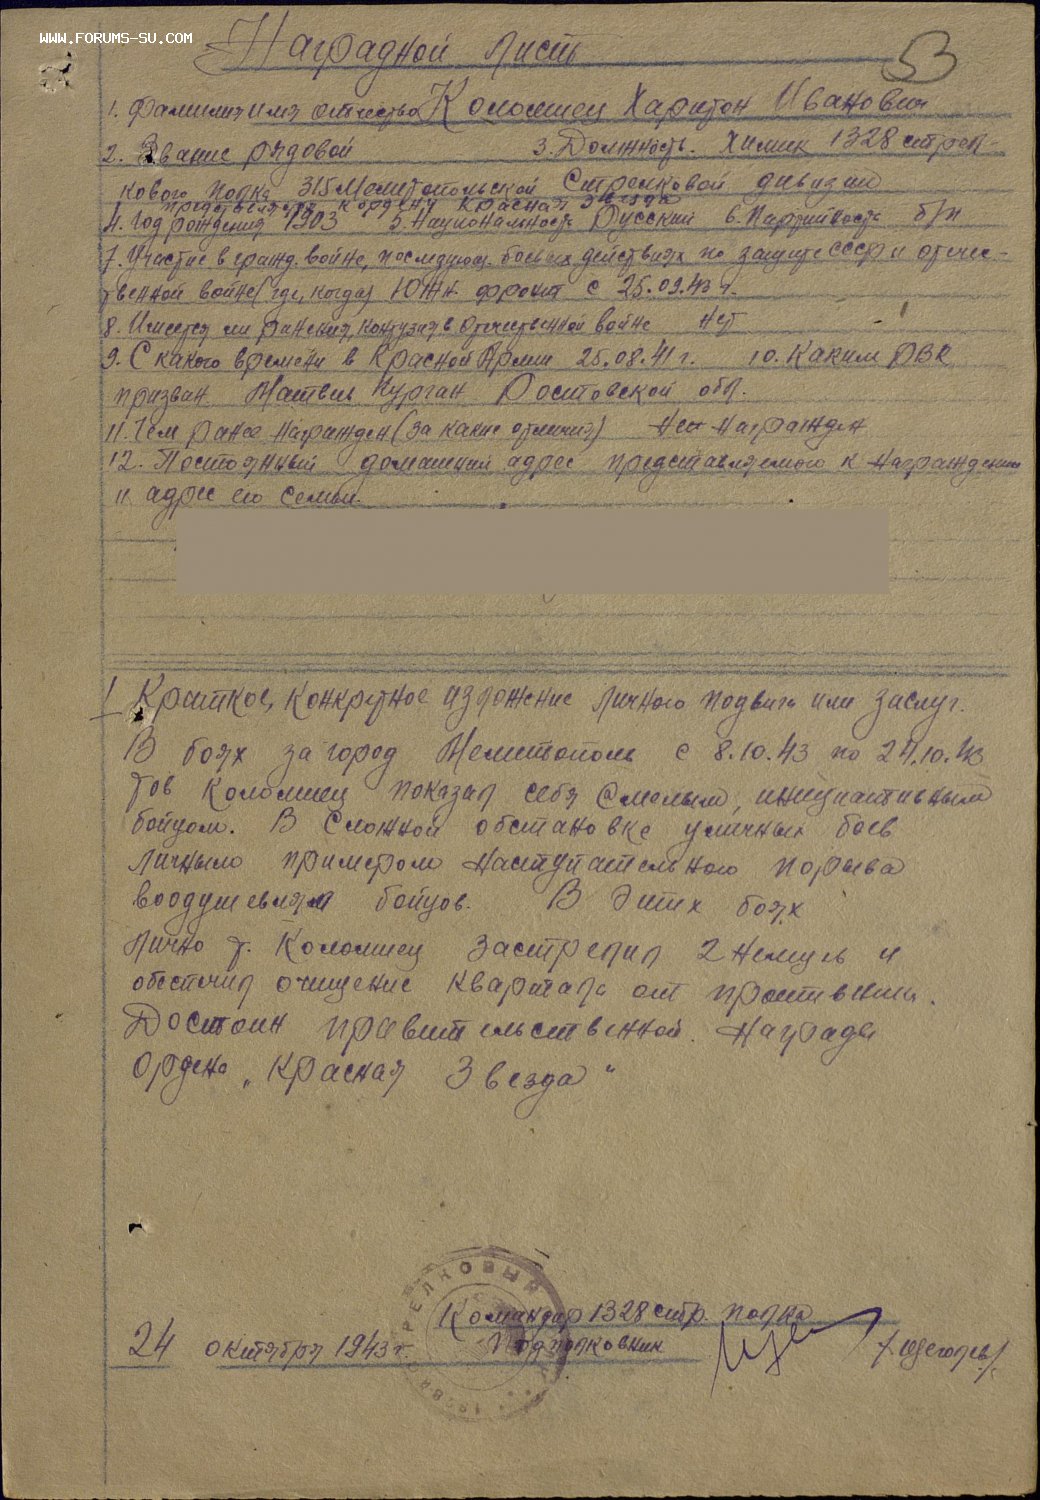 WWW.FORUMS-SU.COM
53
Наградной листъ
1. Фамилия имя отчество Коломиец Харитон Иванович
2. Звание рядовой 3. Должность. Химик 1328 стрел-
кового полка 315 Мелитопольской Стрелковой дивизии
представляется к ордену Красная Звезда
4. Год рождения 1903 5. Национальность Русский 6. Партийность б/п
7. Участие в гражд. войне, последующ. боевых действиях по защите СССР и отечес-
твенной войне (где, когда) Южн. фронт с 25.09.43 г.
8. Имеет ли ранения, контузия в отечественной войне нет
9. С какого времени в Красной Армии 25.08.41 г. 10. Каким РВК
призван Матвеев Курган Ростовской обл.
11. Чем ранее награжден (за какие отличия) не награжден
12. Постоянный домашний адрес представляемого к награждению
и адрес его семьи.
I Краткое, конкретное изложение личного подвига или заслуг.
В боях за город Мелитополь с 8.10.43 по 24.10.43
тов Коломиец показал себя смелым, инициативным
бойцом. В сложной обстановке уличных боев
личным примером наступательного порыва
воодушевлял бойцов. В этих боях
лично т. Коломиец застрелил 2 немцев и
обеспечил очищение квартала от противника.
Достоин правительственной награды
ордена „Красная Звезда"
РЕЛКОВЫЙ
Командир 1328 стр. полка
24 октября 1943 г. Подполковник /Щеголев/